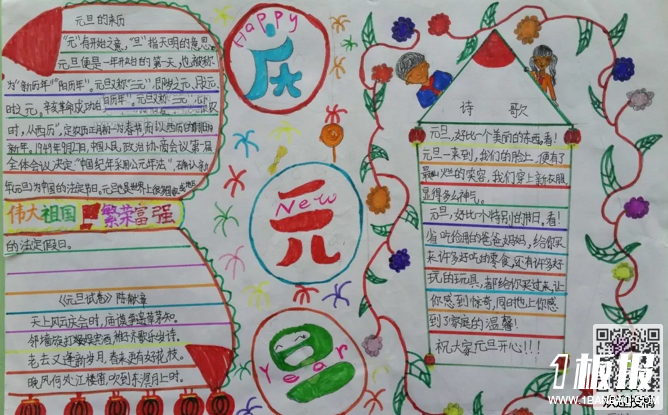 元旦的来历
"元"有开始之意,"旦"指天明的意思。
元旦便是一年开始的第一天,也被称
为"新历年""阳历年"。元旦又称"三元",即岁之元、月之元、
时之元。辛亥革命成功后
时,从西历",定农历正月初一为春节
新年。1949年9月27日,中国人民政治协商会议第一届
全体会议决定"中国纪年采用公元年法",确认
年元旦为中国的法定节日。元旦也是世界上很多国家或地区
伟大祖国 繁荣富强
的法定假日。
《元旦试笔》陈献章
天上风云庆会时,庙谟争遣草茅知。
邻墙旋打娱宾酒,稚子齐歌乐岁诗。
老去又逢新岁月,春来更有好花枝。
晚风何处江楼笛,吹到东溟月上时。
Happy
庆
New
元
Year
旦
诗 歌
元旦,好比一个美丽的东西,看!
元旦一来到,我们的脸上便有了
最灿烂的笑容,我们穿上新衣服
显得多么神气。
元旦,好比一个特别的节日,看!
省吃俭用的爸爸妈妈,给你买
来许多好吃的零食,还有许多好
玩的玩具,都给你买过来,让
你感到惊奇,同时也让你感
到了家庭的温馨!
祝大家元旦开心!!!
1板报
WWW.1BANBAO.COM
欢迎投稿